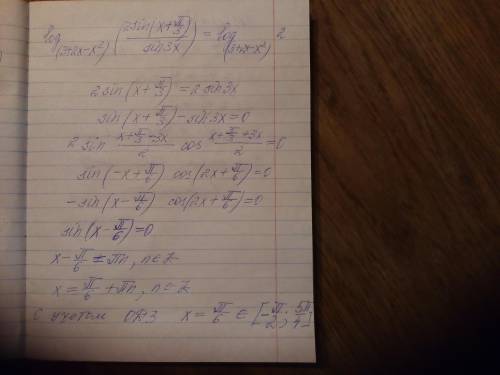 log_(2+2x-x²) (2sin(x+π/3)/sin3x) = log_(2+2x-x²) 2
2 sin(x+π/3) = 2 sin3x
sin(x+π/3) - sin3x = 0
2 sin (x+π/3-3x)/2 cos (x+π/3+3x)/2 = 0
sin(-x+π/6) cos(2x+π/6) = 0
-sin(x-π/6) cos(2x+π/6) = 0
sin(x-π/6) = 0
x-π/6 = πn, n∈Z
x = π/6 + πn, n∈Z
С учетом ОДЗ x = π/6 ∈ [-π/2; 5π/4]